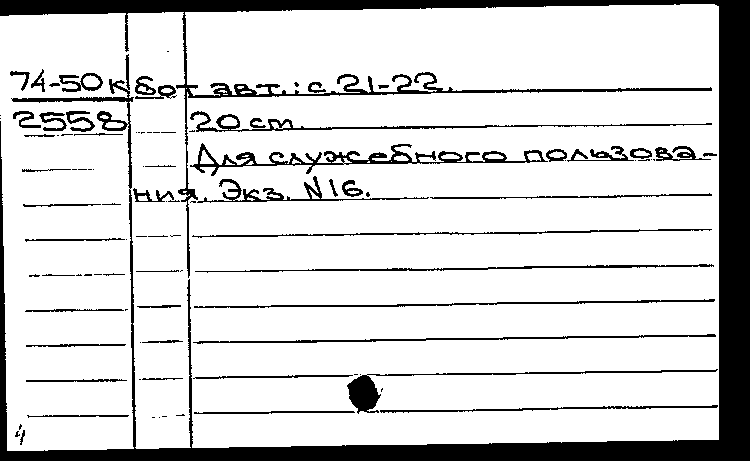 74-50к бот авт.: с. 21-22.
2558 20 cm.
Для служебного пользова-
ния. Экз. N16.
4